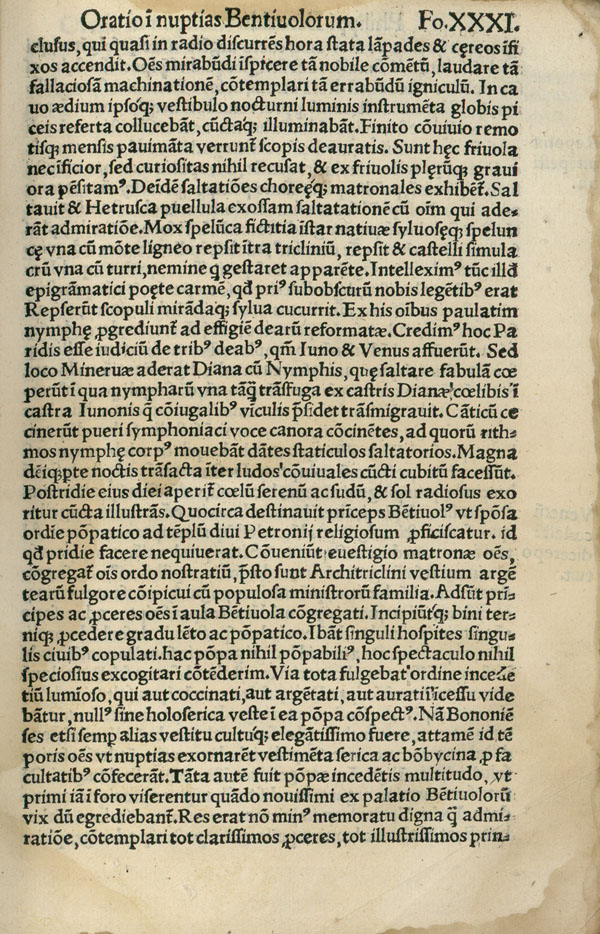 Oratio ī nuptias Bentiuolorum. Fo.XXXI.
clusus, qui quasi in radio discurrēs hora stata lāpades & cęreos īfi
xos accendit. Oēs mirabūdi īspicere tā nobile cōmētū, laudare tā
fallaciosā machinationē, cōtemplari tā errabūdū igniculū. In ca
uo ædium ipsoꝗ; vestibulo nocturni luminis instrumēta globis pi
ceis referta collucebāt, cūctaꝗ; illuminabāt. Finito cōuiuio remo
tisꝗ; mensis pauimāta verrunt̄ scopis deauratis. Sunt hęc friuola
nec īficior, sed curiositas nihil recusat, & ex friuolis plęrūꝗ; graui
ora pēsitamꝰ. Deīdē saltatiōes choreęꝗ; matronales exhibēt̄. Sal
tauit & Hetrusca puellula exossam saltatationē cū oīm qui ade⸗
rāt admiratiōe. Mox spelūca fictitia īstar natiuæ syluosęꝗ; spelun
cę vna cū mōte ligneo repsit ītra tricliniū, repsit & castelli simula
crū vna cū turri, nemine ꝗ gestaret apparēte. Intelleximꝰ tūc illd̄
epigrāmatici poęte carmē, qd̄ priꝰ subobscurū nobis legētibꝰ erat
Repserūt scopuli mirādaꝗ; sylua cucurrit. Ex his oībus paulatim
nymphę ꝓgrediunt̄ ad effigiē dearū reformatæ. Credimꝰ hoc Pa
ridis esse iudiciū de tribꝰ deabꝰ, qm̄ Iuno & Venus affuerūt. Sed
loco Mineruæ aderat Diana cū Nymphis, quę saltare fabulā cœ
perūt ī qua nympharū vna tāꝗ̄ trāsfuga ex castris Dianæ cœlibis ī
castra Iunonis ꝗ̄ cōiugalibꝰ viculis p̄sidet trāsmigrauit. Cāticū ce
cinerūt pueri symphoniaci voce canora cōcinētes, ad quorū rith⸗
mos nymphę corpꝰ mouebāt dātes staticulos saltatorios. Magna
dēiꝗ; pte noctis trāsacta īter ludos cōuiuales cūcti cubitū facessūt.
Postridie eius diei aperit̄ cœlū serenū ac sudū, & sol radiosus exo
ritur cūcta illustrās. Quocirca destinauit prīceps Bētiuolꝰ vt spōsa
ordie pōpatico ad tēplū diui Petronij religiosum ꝓficiscatur. id
qd̄ pridie facere nequiuerat. Cōueniūt euestigio matronæ oēs,
cōgregat̄ oīs ordo nostratiū, p̄sto sunt Architriclini vestium argē
tearū fulgore cōipicui cū populosa ministrorū familia. Adsūt prī⸗
cipes ac ꝓceres oēs ī aula Bētiuola cōgregati. Incipiūtꝗ; bini ter⸗
niꝗ; ꝓcedere gradu lēto ac pōpatico. Ibāt singuli hospites singu⸗
lis ciuibꝰ copulati. hac pōpa nihil pōpabiliꝰ, hoc spectaculo nihil
speciosius excogitari cōtēderim. Via tota fulgebat ordine inceđē
tiū lumīoso, qui aut coccinati, aut argētati, aut aurati īcessu vide
bātur, nullꝰ sine holoserica veste ī ea pōpa cōspectꝰ. Nā Bononiē
ses etsi semꝑ alias vestitu cultuꝗ; elegātissimo fuere, attamē id tē
poris oēs vt nuptias exornarēt vestimēta serica ac bōbycina ꝓ fa
cultatibꝰ cōfecerāt. Tāta autē fuit pōpæ incedētis multitudo, vt
primi iā ī foro viserentur quādo nouissimi ex palatio Bētiuolorū
vix dū egrediebant̄. Res erat nō minꝰ memoratu digna ꝗ̄ admi⸗
ratiōe, cōtemplari tot clarissimos ꝓceres, tot illustrissimos prin⸗